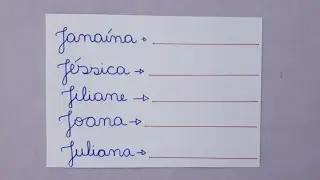 Janaína →
Jéssica →
Jiliane →
Joana →
Juliana →